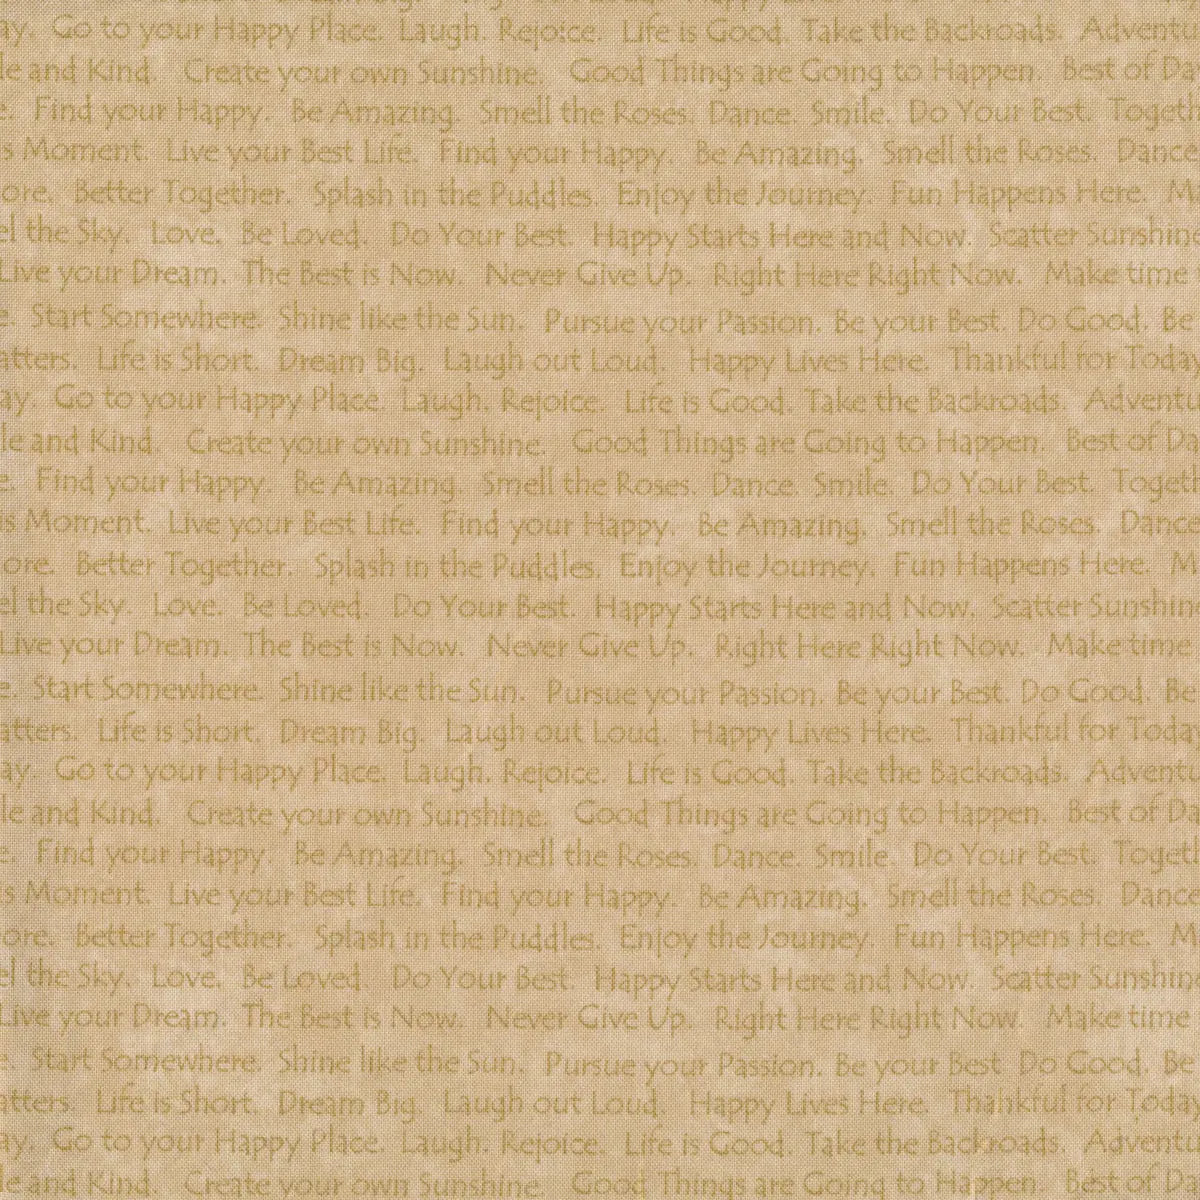 ay. Go to your Happy Place. Laugh. Rejoice. Life is Good. Take the Backroads. Adventu
le and Kind. Create your own Sunshine. Good Things are Going to Happen. Best of Da
e. Find your Happy. Be Amazing. Smell the Roses. Dance. Smile. Do Your Best. Togeth
s Moment. Live your Best Life. Find your Happy. Be Amazing. Smell the Roses. Dance
ore. Better Together. Splash in the Puddles. Enjoy the Journey. Fun Happens Here. M
el the Sky. Love. Be Loved. Do Your Best. Happy Starts Here and Now. Scatter Sunshine
Live your Dream. The Best is Now. Never Give Up. Right Here Right Now. Make time
e. Start Somewhere. Shine like the Sun. Pursue your Passion. Be your Best. Do Good. Be
atters. Life is Short. Dream Big. Laugh out Loud. Happy Lives Here. Thankful for Today
ay. Go to your Happy Place. Laugh. Rejoice. Life is Good. Take the Backroads. Adventu
le and Kind. Create your own Sunshine. Good Things are Going to Happen. Best of Da
e. Find your Happy. Be Amazing. Smell the Roses. Dance. Smile. Do Your Best. Togeth
is Moment. Live your Best Life. Find your Happy. Be Amazing. Smell the Roses. Dance
ore. Better Together. Splash in the Puddles. Enjoy the Journey. Fun Happens Here. M
el the Sky. Love. Be Loved. Do Your Best. Happy Starts Here and Now. Scatter Sunshin
Live your Dream. The Best is Now. Never Give Up. Right Here Right Now. Make time
e. Start Somewhere. Shine like the Sun. Pursue your Passion. Be your Best. Do Good. Be
atters. Life is Short. Dream Big. Laugh out Loud. Happy Lives Here. Thankful for Today
ay. Go to your Happy Place. Laugh. Rejoice. Life is Good. Take the Backroads. Adventu
le and Kind. Create your own Sunshine. Good Things are Going to Happen. Best of Da
e. Find your Happy. Be Amazing. Smell the Roses. Dance. Smile. Do Your Best. Togeth
is Moment. Live your Best Life. Find your Happy. Be Amazing. Smell the Roses. Dance
ore. Better Together. Splash in the Puddles. Enjoy the Journey. Fun Happens Here. M
el the Sky. Love. Be Loved. Do Your Best. Happy Starts Here and Now. Scatter Sunshine
Live your Dream. The Best is Now. Never Give Up. Right Here Right Now. Make time
e. Start Somewhere. Shine like the Sun. Pursue your Passion. Be your Best Do Good. Be
atters. Life is Short. Dream Big. Laugh out Loud. Happy Lives Here. Thankful for Today
ay. Go to your Happy Place. Laugh. Rejoice. Life is Good. Take the Backroads. Adventu
le and Kind. Create your own Sunshine. Good Things are Going to Happen. Best of Da